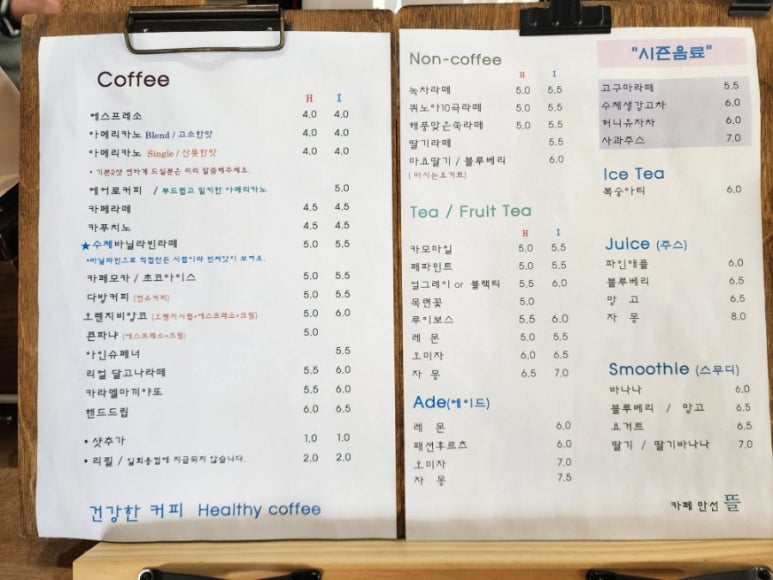 Coffee
H I
에스프레소 4.0 4.0
아메리카노 Blend / 고소한맛 4.0 4.0
아메리카노 Single / 산뜻한맛 4.0 4.0
• 기본2샷 연하게 드실분은 미리 말씀해주세요.
에어로커피 / 부드럽고 밀키한 아메리카노 5.0
카페라떼 4.5 4.5
카푸치노 4.5 4.5
★수제바닐라빈라떼 5.0 5.5
•바닐라빈으로 직접만든 시럽이라 빈씨앗이 보여요.
카페모카 / 초코아이스 5.0 5.5
다방커피 (연유커피) 5.0 5.5
오렌지비앙코 (오렌지시럽+에스프레소+크림) 5.0 6.0
콘파냐 (에스프레소+크림) 5.0
아인슈페너 5.5
리얼 달고나라떼 5.5 6.0
카라멜마끼야또 5.5 6.0
핸드드립 6.0 6.5
• 샷추가 1.0 1.0
• 리필 / 일회용컵에 지급되지 않습니다. 2.0 2.0
건강한 커피 Healthy coffee
Non-coffee
H I
녹차라떼 5.0 5.5
퀴노아10곡라떼 5.0 5.5
해풍맞은쑥라떼 5.0 5.5
딸기라떼 5.5
마요딸기 / 블루베리 6.0
(마시는요거트)
Tea / Fruit Tea
H I
카모마일 5.0 5.5
페파민트 5.0 5.5
얼그레이 or 블랙티 5.5 6.0
목련꽃 5.0
루이보스 5.5 6.0
레 몬 5.0 5.5
오미자 6.0 6.5
자 몽 6.5 7.0
Ade(에이드)
레 몬 6.0
패션후르츠 6.0
오미자 7.0
자 몽 7.5
"시즌음료"
고구마라떼 5.5
수제생강고차 6.0
허니유자차 6.0
사과주스 7.0
Ice Tea
복숭아티 6.0
Juice (주스)
파인애플 6.0
블루베리 6.5
망 고 6.5
자 몽 8.0
Smoothie (스무디)
바나나 6.0
블루베리 / 망고 6.5
요거트 6.5
딸기 / 딸기바나나 7.0
카페 만선 뜰